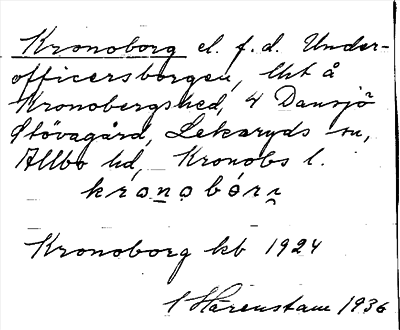 Kronoborg el. f.d. Under-
officersborgen, lht å
Kronobergshed, 4 Dansjö
Stövagård, Lekaryds sn,
Allbo hd, Kronobs l.
kronobórj
Kronoborg kb 1924
Härenstam 1936